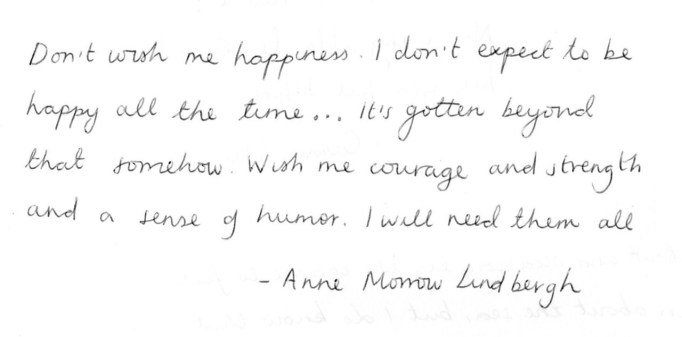 Don't wish me happiness. I don't expect to be
happy all the time... It's gotten beyond
that somehow. Wish me courage and strength
and a sense of humor. I will need them all
- Anne Morrow Lindbergh